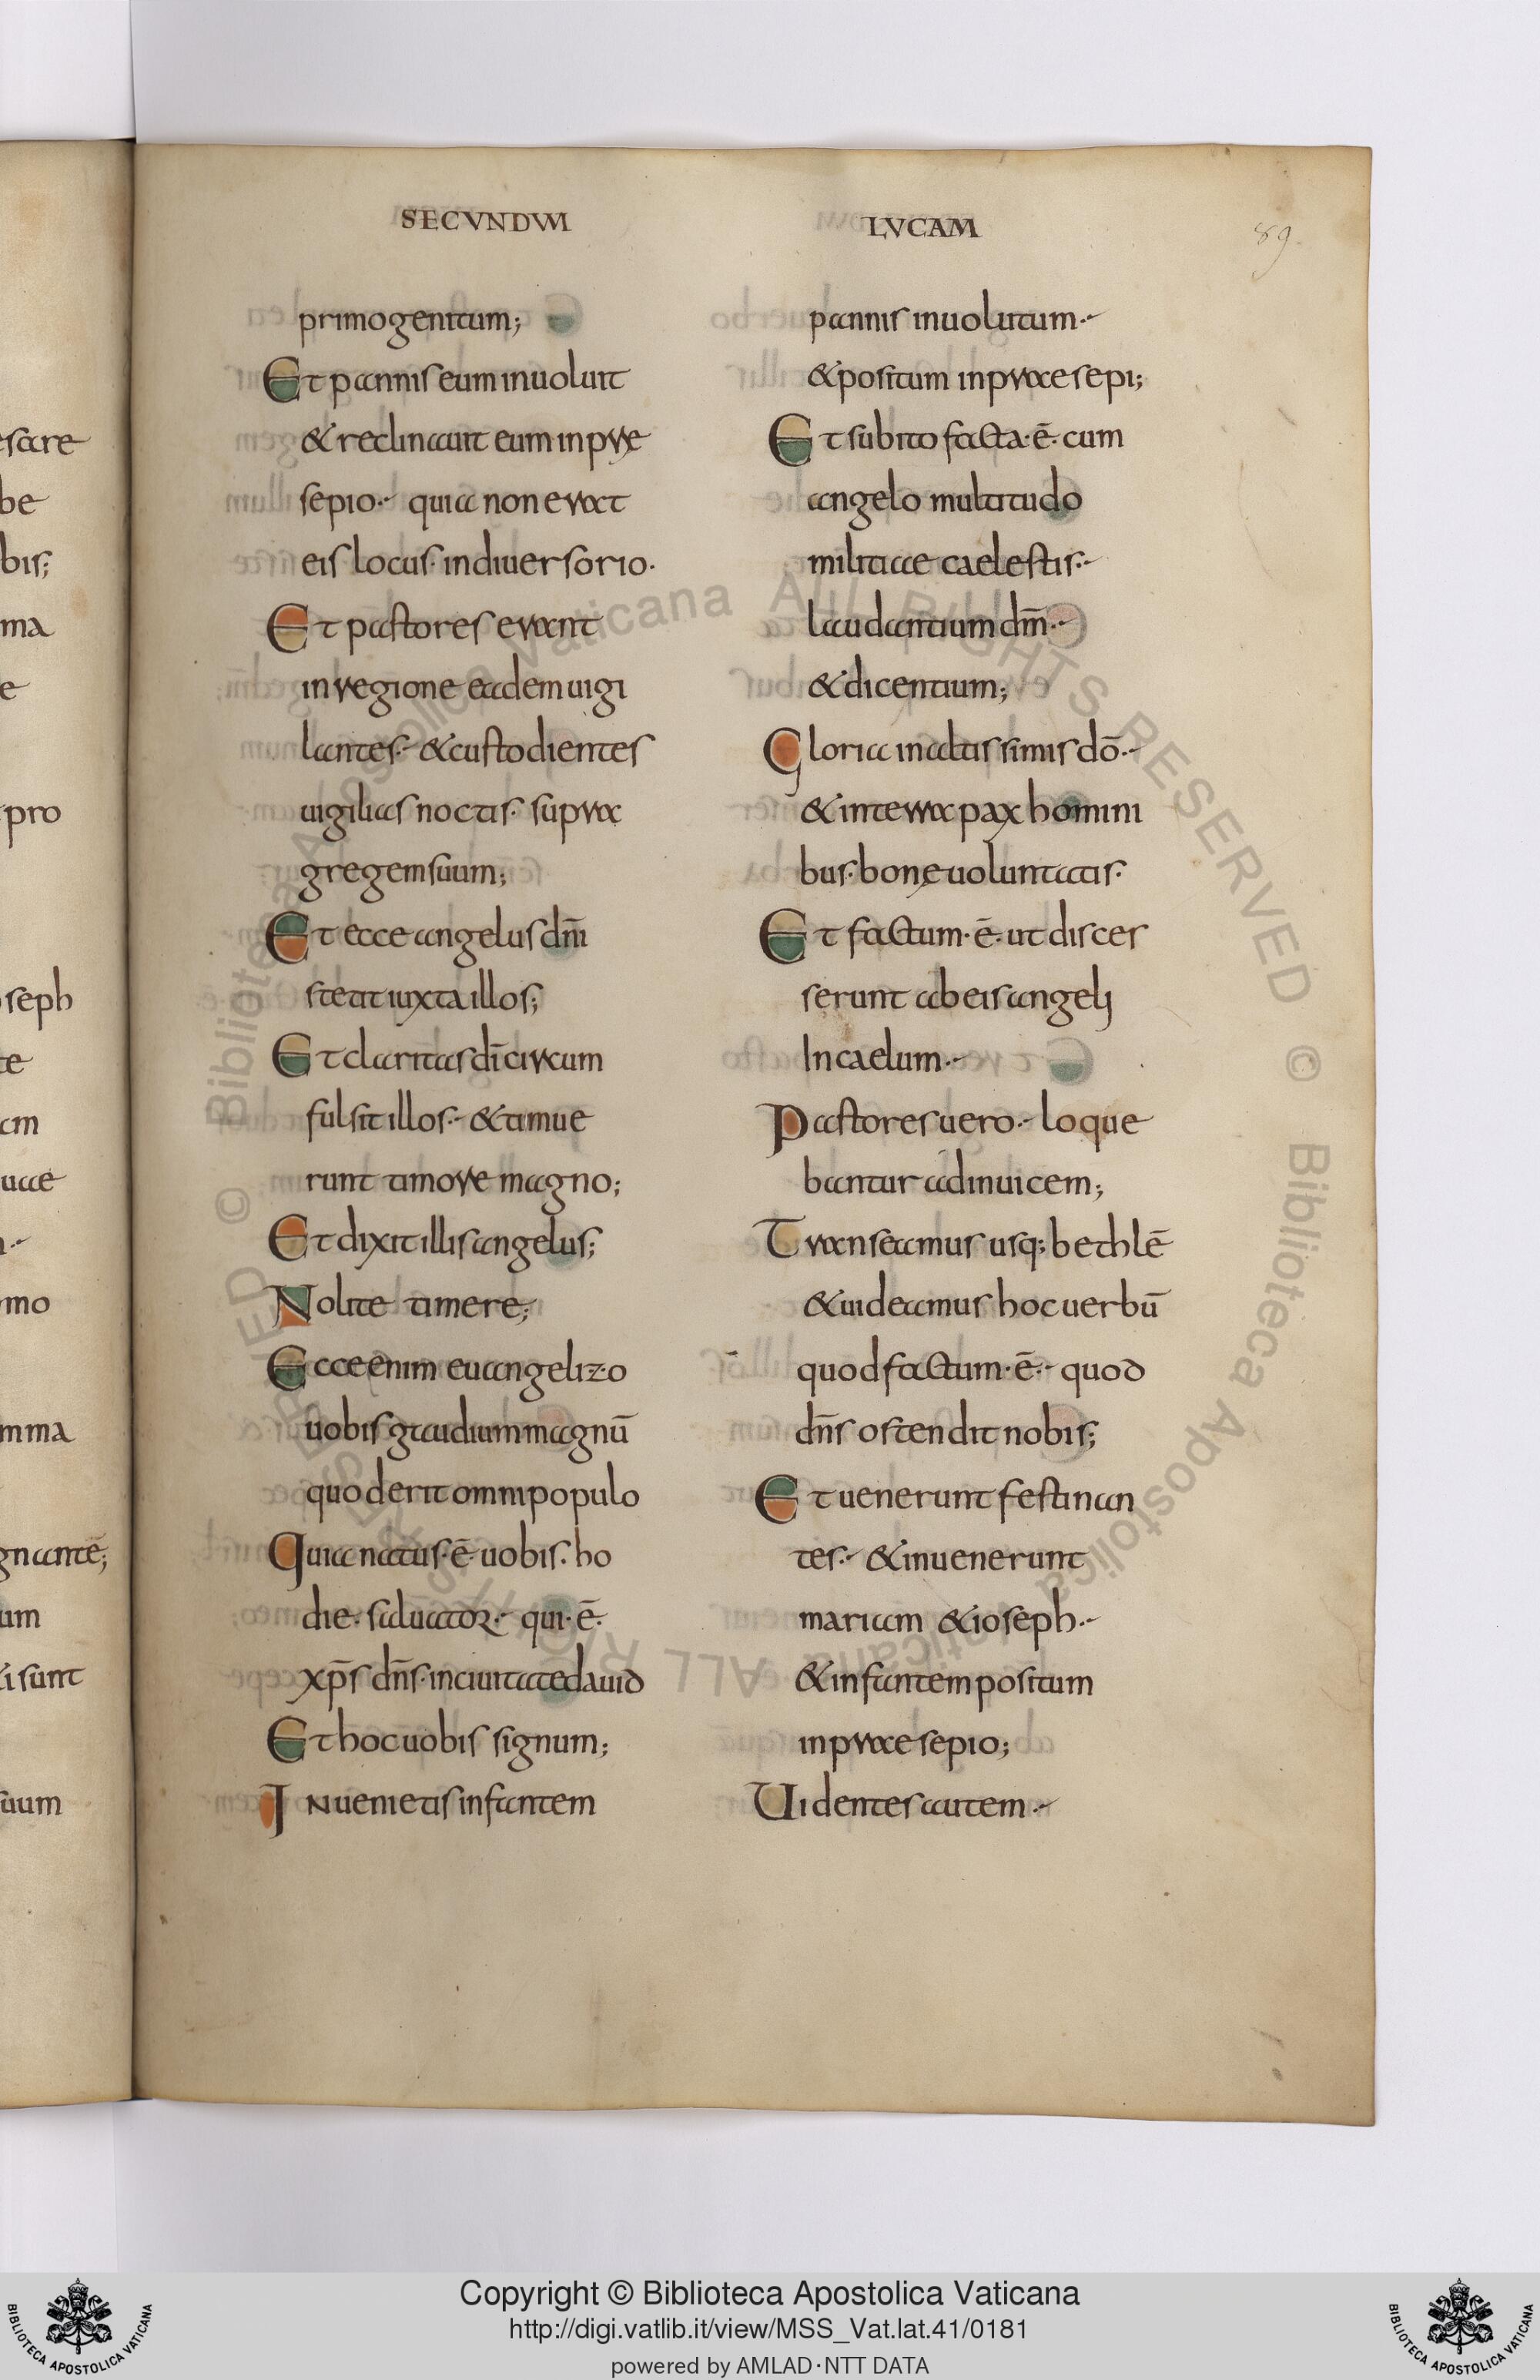 SECVNDVM
primogenitum;
Et pannis eum inuoluit
& reclinauit eum in prę
sepio. quia non erat
eis locus. in diuersorio.
Et pastores erant
in regione eadem uigi
lantes. & custodientes
uigilias noctis. supra
gregem suum;
Et ecce angelus dn̄i
stetit iuxta illos;
Et claritas dī circum
fulsit illos. & timue
runt timore magno;
Et dixit illis angelus;
Nolite timere;
Ecce enim euangelizo
uobis gaudium magnū
quod erit omni populo
Quia natus. ē. uobis. ho
die. saluator. qui. ē.
xp̄s dn̄s. in ciuitate dauid
Et hoc uobis signum;
Inuenietis infantem
LVCAM
89.
pannis inuolutum.
& positum in praesepi;
Et subito facta. ē. cum
angelo multitudo
militiae caelestis.
laudantium dm̄.
& dicentium;
Gloria in altissimis dō.
& in terra pax homini
bus. bonę uoluntatis.
Et factum. ē. ut disces
serunt ab eis angeli
In caelum.
Pastores uero. loque
bantur adinuicem;
Transeamus usq; bethlē
& uideamus hoc uerbū
quod factum. ē. quod
dn̄s ostendit nobis;
Et uenerunt festinan
tes. & inuenerunt
mariam & ioseph.
& infantem positum
in praesepio;
Uidentes autem.
esare
be
bis;
ma
e
pro
oseph
te
am
uae
mo
mma
gnantē;
um
i sunt
suum
© Biblioteca Apostolica Vaticana ALL RIGHTS RESERVED © Biblioteca Apostolica Vaticana ALL RIGHTS RESERVED
Copyright © Biblioteca Apostolica Vaticana
http://digi.vatlib.it/view/MSS_Vat.lat.41/0181
powered by AMLAD·NTT DATA
BIBLIOTECA APOSTOLICA VATICANA
BIBLIOTECA APOSTOLICA VATICANA